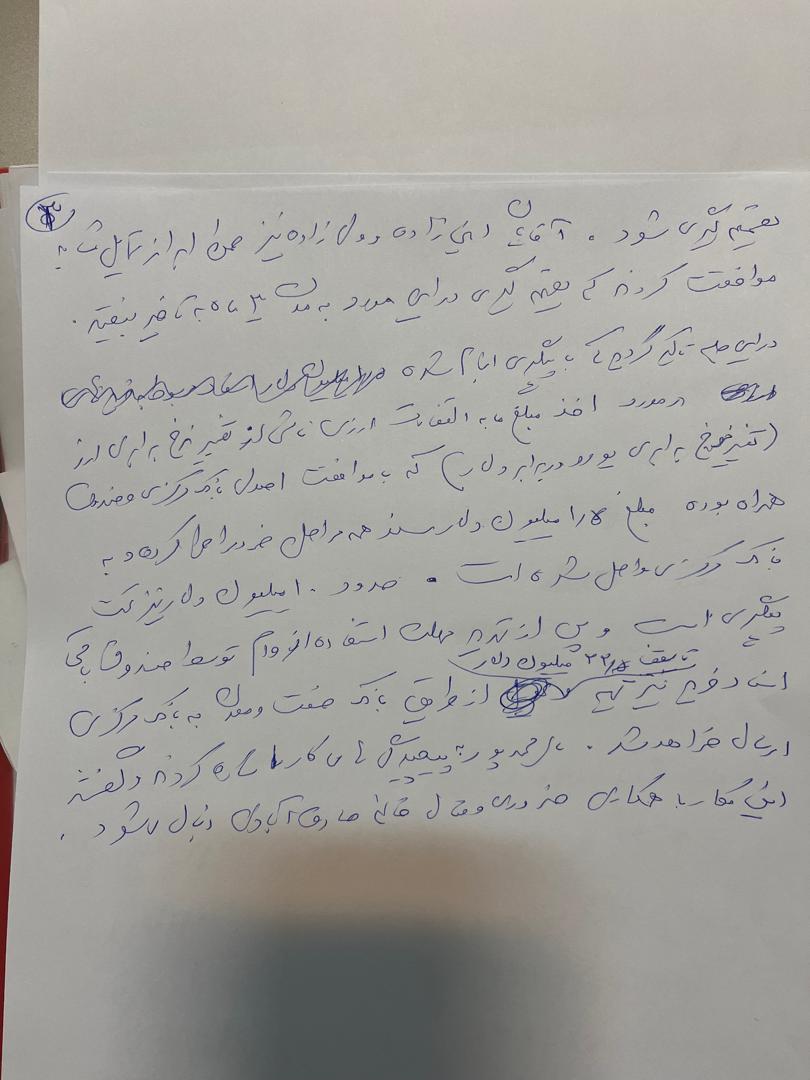 ۳
تصمیم گیری شود . آقایان امین زاده و ولی زاده نیز ضمن ابراز تمایل مشابه
موافقت کردند که تصمیم گیری در این مورد به مدت ۳ ماه به تاخیر بیفتد .
در این جلسه تاکید گردید که با پیگیری انجام شده
در مورد اخذ مبلغ مابه التفاوت ارزی ناشی از تغییر نرخ برابری ارز
(تغییر نرخ برابری یورو در برابر دلار) که با موافقت اصولی بانک مرکزی و صندوق
همراه بوده مبلغ ۱/۵ میلیون دلار سند همه مراحل خود را طی کرده و به
بانک مرکزی واصل شده است . حدود ۱۰ میلیون دلار نیز تحت
پیگیری است و پس از تمدید مهلت استفاده از وام توسط صندوق باقی
تا سقف ۲۲/۵ میلیون دلار
اسناد فوج نیز تهیه و از طریق بانک صنعت و معدن به بانک مرکزی
ارسال خواهد شد . پور به پیچیدگی های کار اشاره کردند و گفتند
این کار با همکاری ضروری و فعال خانم صادق آبادی دنبال می شود .